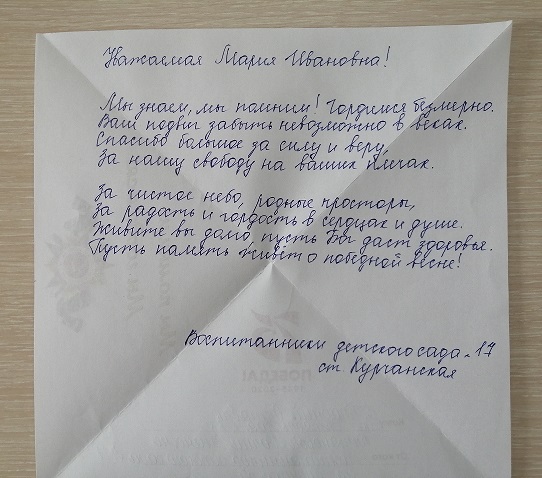 Уважаемая Мария Ивановна!
Мы знаем, мы помним! Гордимся безмерно.
Ваш подвиг забыть невозможно в веках.
Спасибо большое за силу и веру,
За нашу свободу на ваших плечах.
За чистое небо, родные просторы,
За радость и гордость в сердцах и душе.
Живите вы долго, пусть Бог даст здоровья.
Пусть память живёт о победной весне!
Воспитанники детского сада - 17
ст. Курганская
ПОБЕДА!